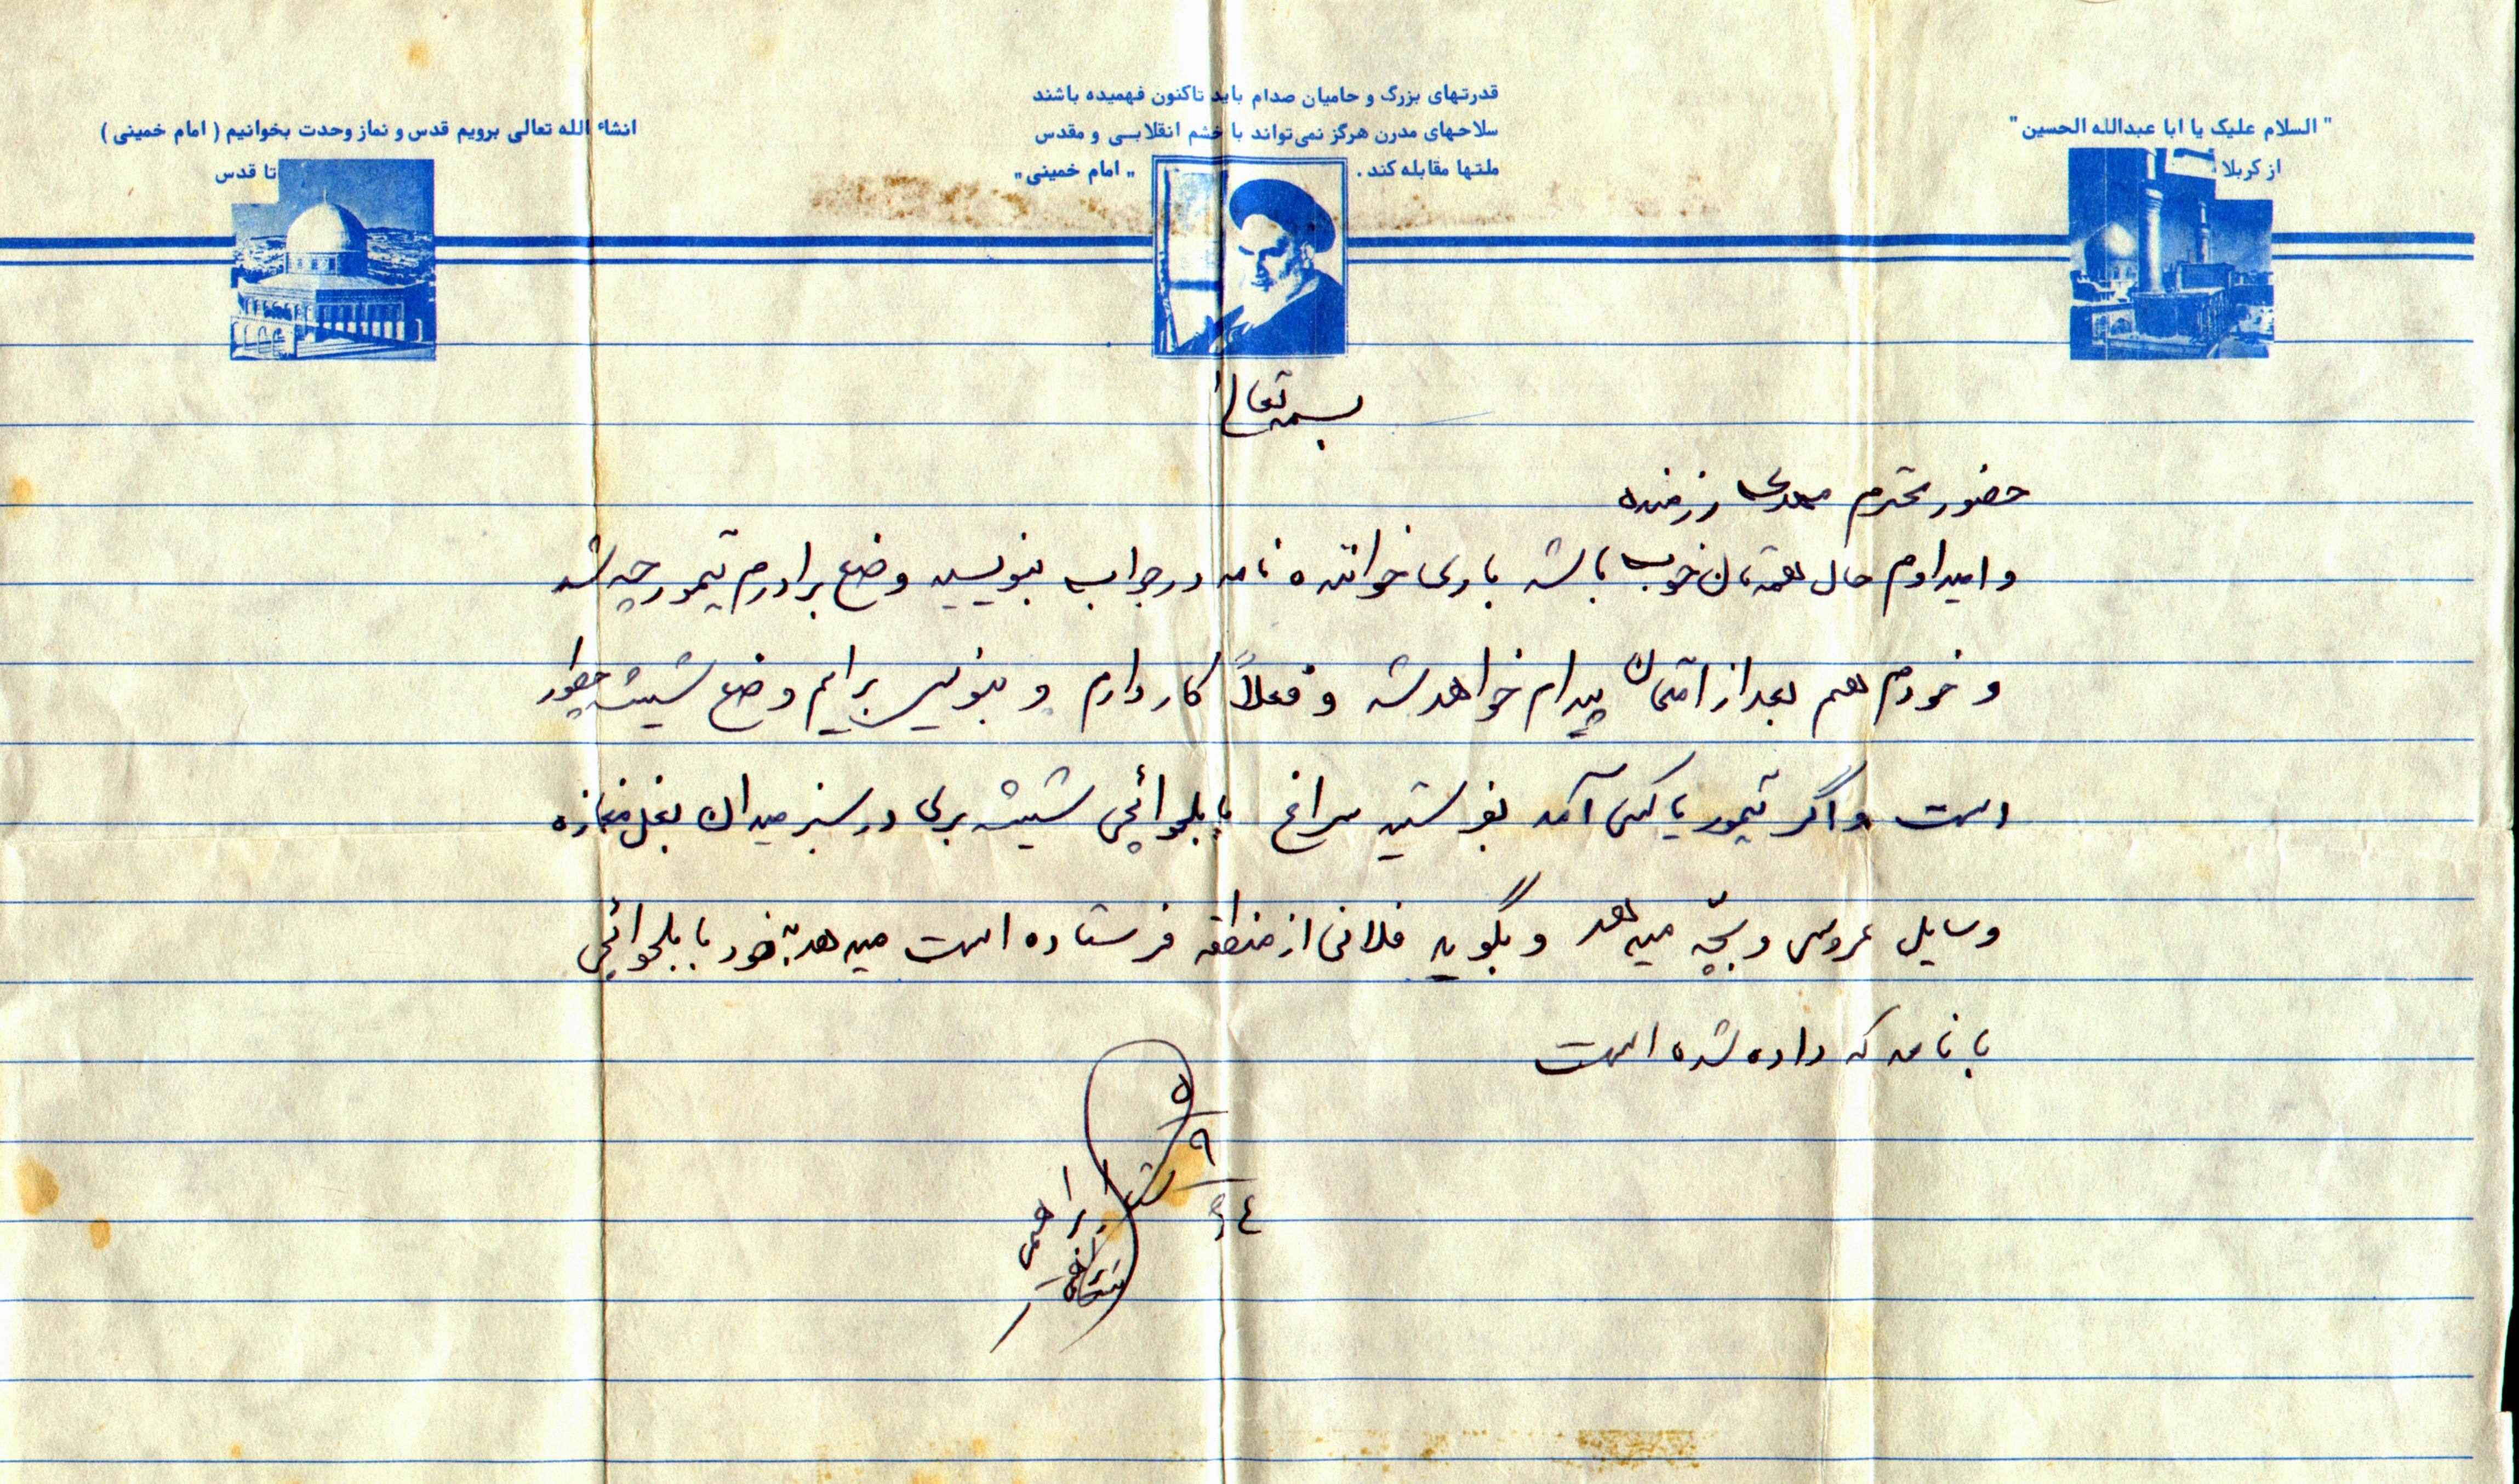 " السلام علیک یا ابا عبدالله الحسین "
از کربلا
قدرتهای بزرگ و حامیان صدام باید تاکنون فهمیده باشند
سلاحهای مدرن هرگز نمی‌تواند با خشم انقلابی و مقدس
ملتها مقابله کند . " امام خمینی "
انشاء الله تعالی برویم قدس و نماز وحدت بخوانیم ( امام خمینی )
تا قدس
بسمه تعالی
حضور محترم مهدی رزمنده
و امیدوارم حال همه تان خوب باشد باری خواننده نامه در جواب بنویسید وضع برادرم تیمور چه شد
و خودم هم بعد از امتحان پیدام خواهد شد و فعلاً کار دارم و بنویس برایم وضع شیشه چطور
است و اگر تیمور یا کسی آمد بفرستید سراغ شیشه بری در سبز میدان بغل مغازه
وسایل عروس و بچه میدهد و بگوید فلانی از منطقه فرستاده است میدهد خود
با نامه که داده شده است
۵
۹
۶۴